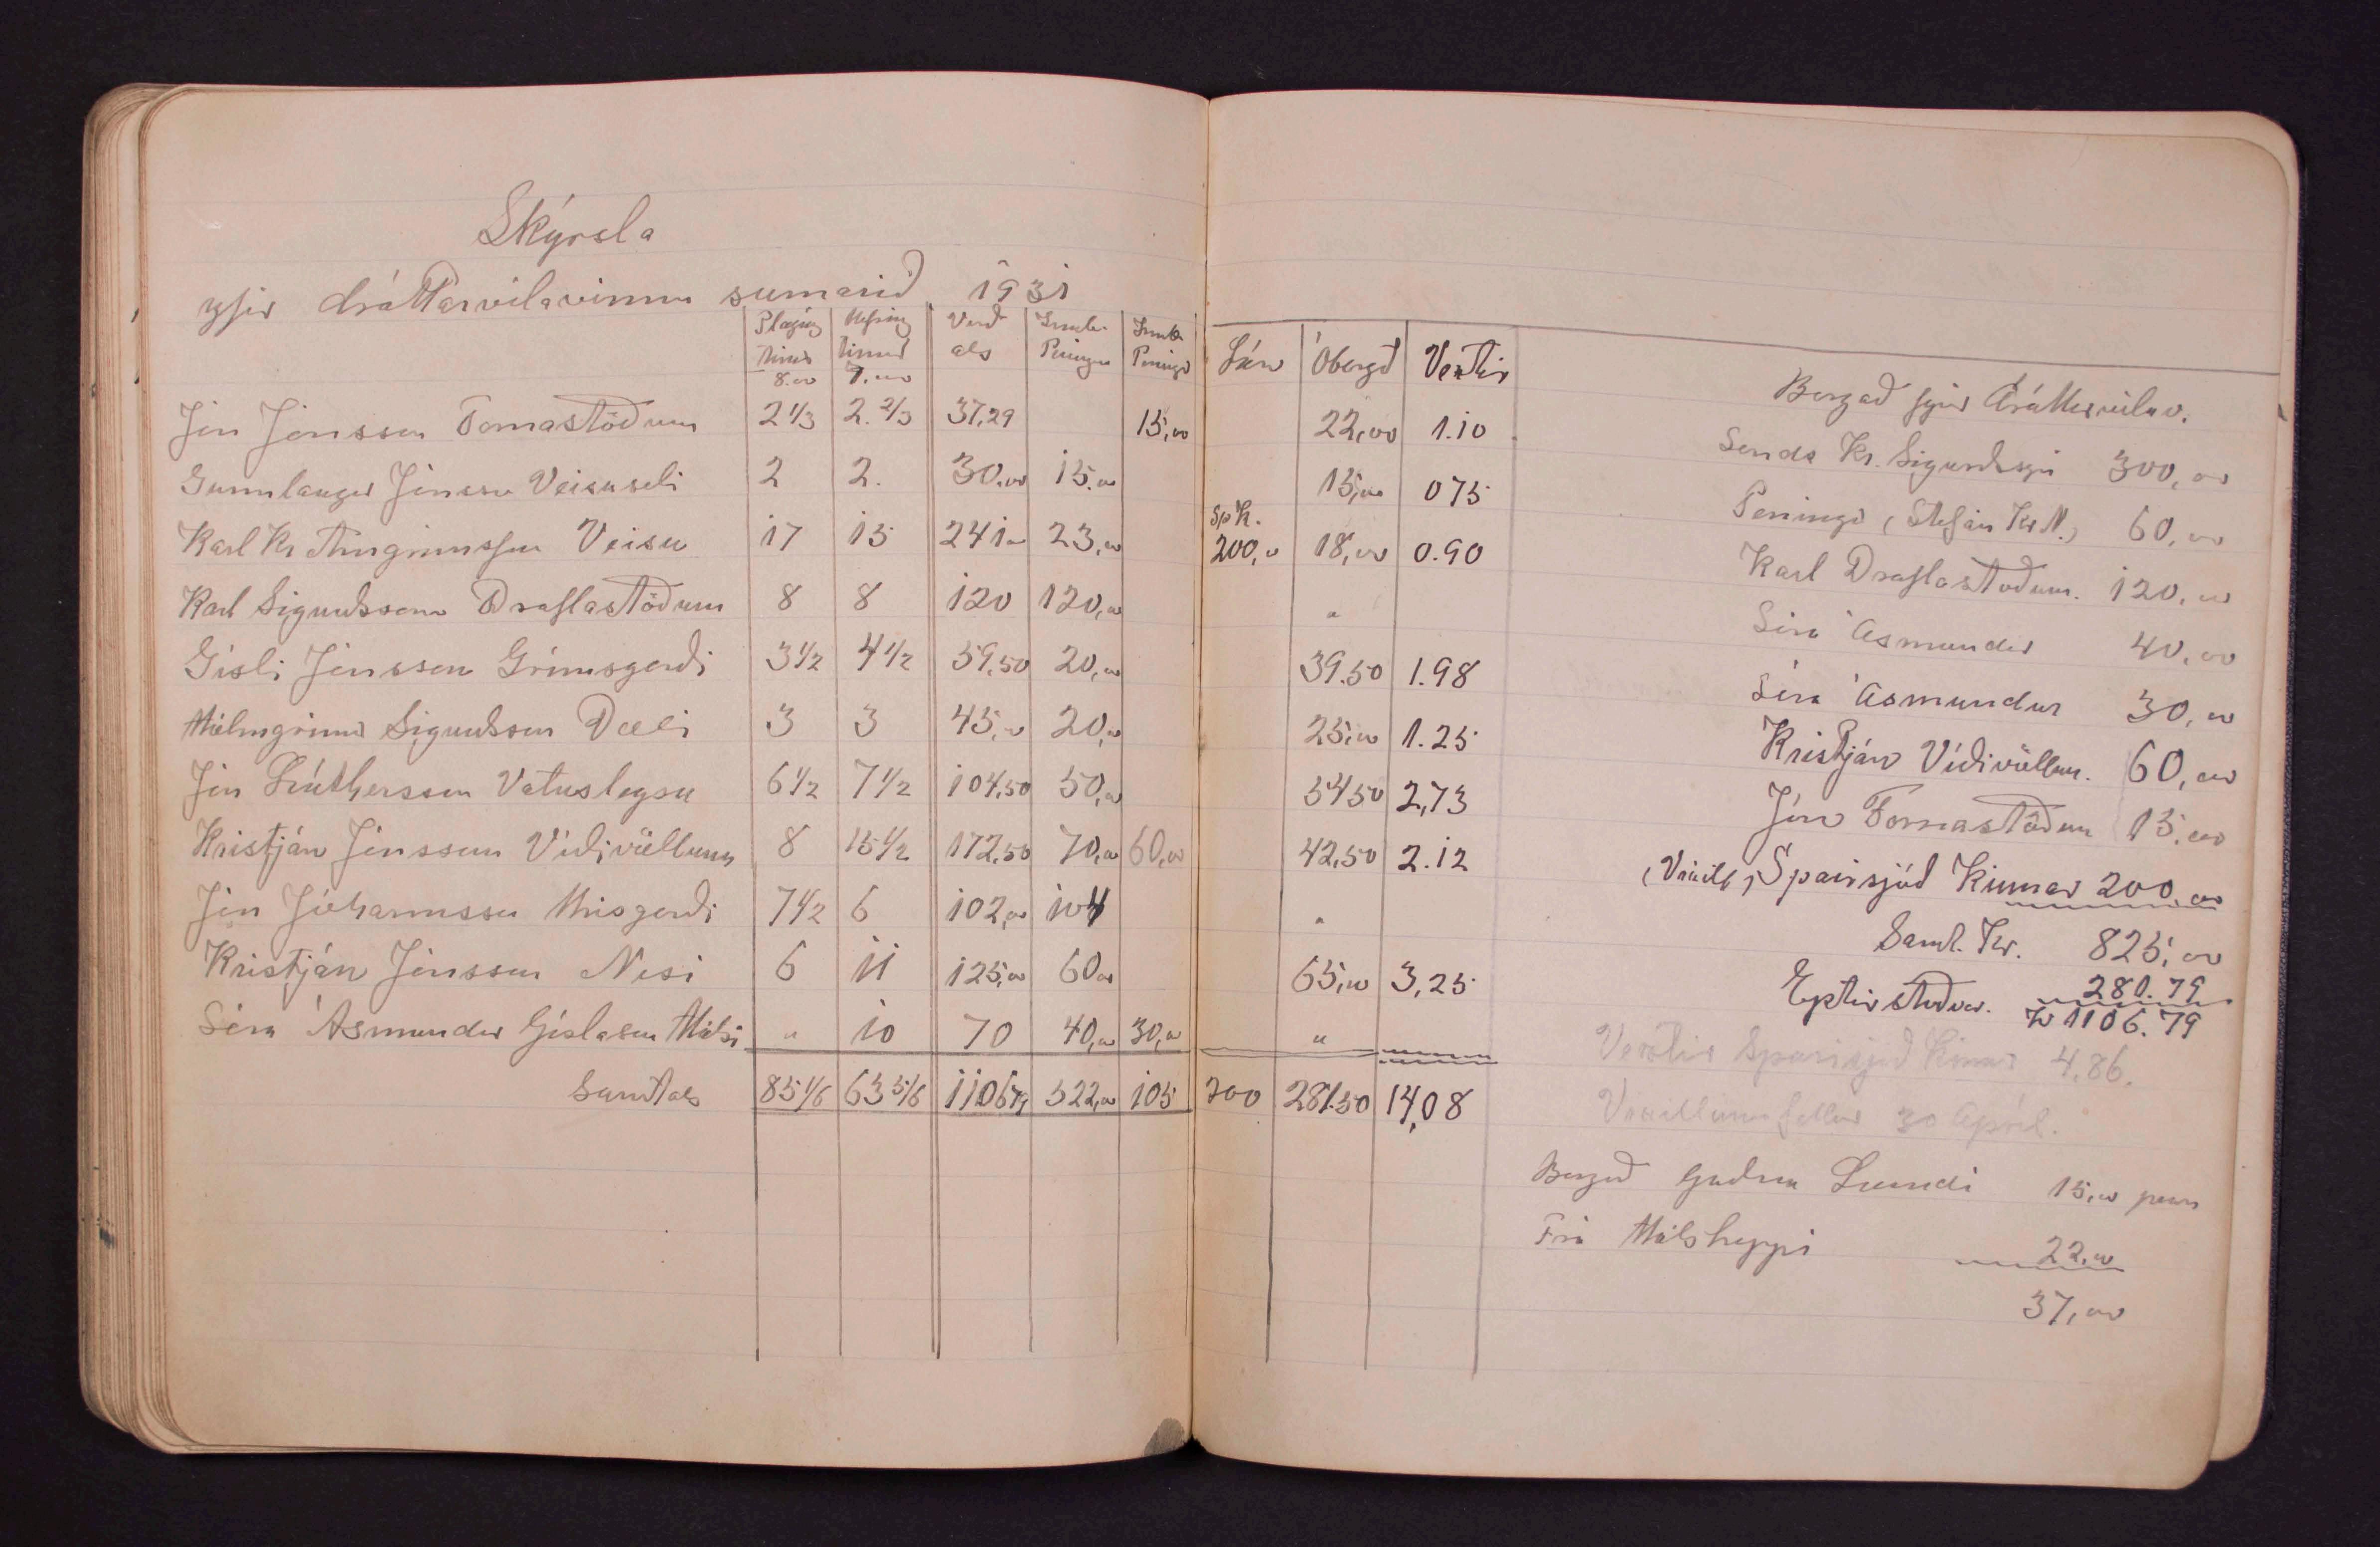 Skýrsla
yfir dráttarvilavinnu sumarið 1931
Plæging Hefing Verð Innb. Innb.
tímar tímar als Peningar Peningar Lán Óborgð Vextir
8.00 7.00
Jón Jónsson Fornastöðum 2 1/3 2. 2/3 37,29 15,00 22,00 1.10
Gunnlaugur Jónsson Veisuseli 2 2. 30.00 15.00 15,00 075
Karl Kr Arngrimsson Veisu 17 15 241 23,00 Sp K. 200,0 18,00 0.90
Karl Sigurdsson Draflastöðum 8 8 120 120,00 "
Gísli Jónsson Grímsgerði 3 1/2 4 1/2 59,50 20,00 39.50 1.98
Hólmgrímur Sigurdsson Dæli 3 3 45,00 20,00 25,00 1.25
Jón Lúthersson Vatnsleysu 6 1/2 7 1/2 104,50 50,00 54 50 2,73
Kristján Jónsson Víðivöllum 8 15 1/2 172,50 70,00 60,00 42,50 2.12
Jón Jóhannsson Hrisgerði 7 1/2 6 102,00 104 "
Kristján Jónsson Nesi 6 11 125,00 60 00 65,00 3,25
Séra Ásmundur Gíslason Hálsi " 10 70 40,00 30,00 "
Samtals 85 1/6 63 5/6 1106 79 522,00 105 200 281.50 14,08
Borgað fyrir Dráttarvélar.
Senda Kr. Sigurdssyni 300,00
Peningar (Stefán Kr. N.) 60,00
Karl Draflastöðum. 120,00
Séra Ásmundur 40,00
Séra Ásmundur 30,00
Kristján Víðivöllum. 60,00
Jón Fornastöðum 15,00
(Víxill) Sparisjóð Kinnar 200,00
Saml. Kr. 825,00
Eptirstöðvar. 280.79
Kr 1106.79
Vextir Sparisjóð Kinnar 4,86.
Víxillinn fellur 30 Apríl.
Borgað Lundi 15,00
Frá Hálshreppi 22,00
37,00